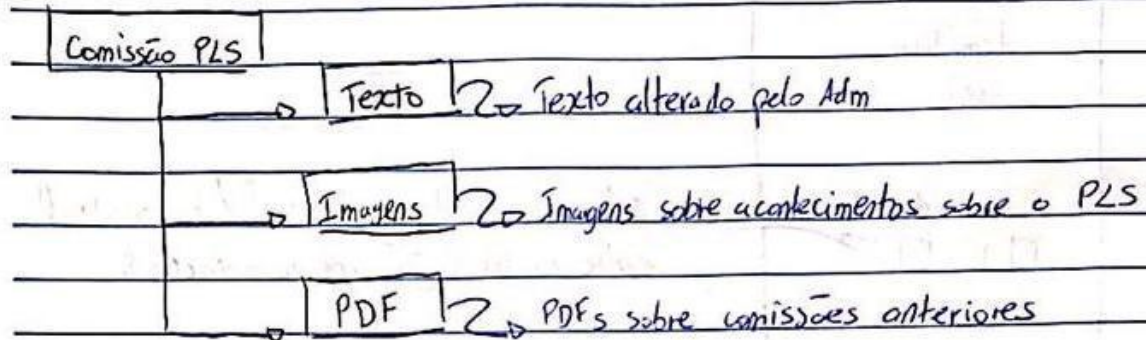 Comissão PLS
Texto Texto alterado pelo Adm
Imagens Imagens sobre acontecimentos sobre o PLS
PDF PDFs sobre comissões anteriores